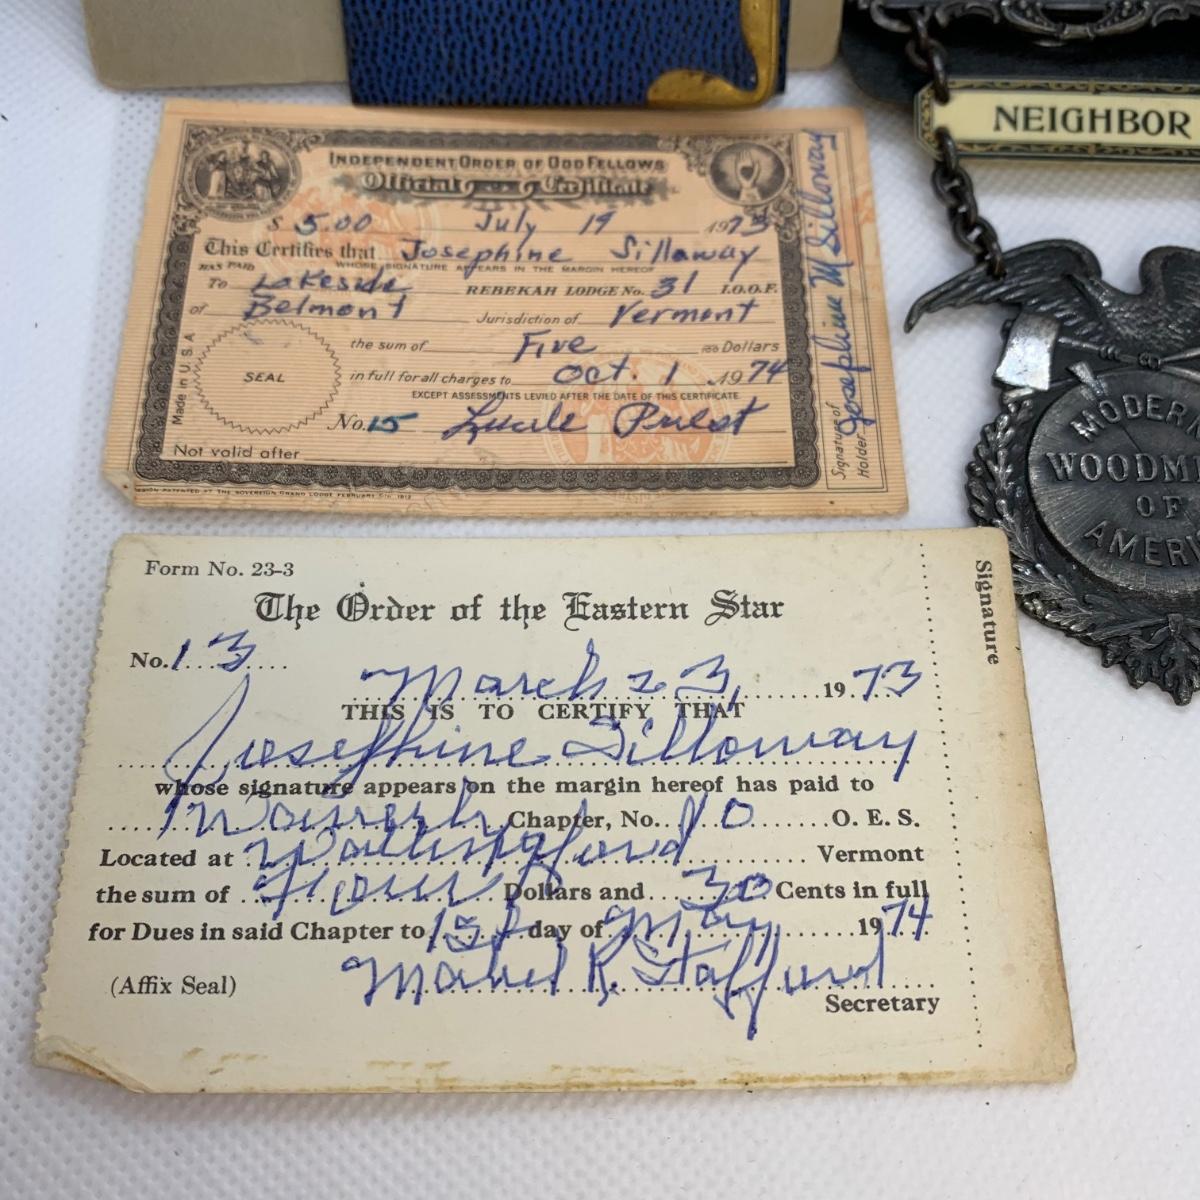 NEIGHBOR
INDEPENDENT ORDER OF ODD FELLOWS
Official Certificate
$ 5.00 July 19 1973
This Certifies that Josephine Sillaway
HAS PAID WHOSE SIGNATURE APPEARS IN THE MARGIN HEREOF
To Lakeside REBEKAH LODGE No. 31 I.O.O.F.
of Belmont Jurisdiction of Vermont
the sum of Five Dollars
in full for all charges to Oct. 1 1974
EXCEPT ASSESSMENTS LEVIED AFTER THE DATE OF THIS CERTIFICATE
SEAL
No. 15 Lucile Priest
Not valid after
Made in U.S.A
Signature of Holder
Josephine M Silloway
PATENTED BY THE SOVEREIGN GRAND LODGE FEBRUARY 1912
MODERN
WOODM
OF
AMERI
Form No. 23-3
The Order of the Eastern Star
No. 13
March 23, 1973
THIS IS TO CERTIFY THAT
Josephine Silloway
whose signature appears on the margin hereof has paid to
Chapter, No. 10 O. E. S.
Located at Wallingford Vermont
the sum of Four Dollars and 30 Cents in full
for Dues in said Chapter to 1st day of May 1974
Mabel R. Stafford
(Affix Seal)
Secretary
Signature